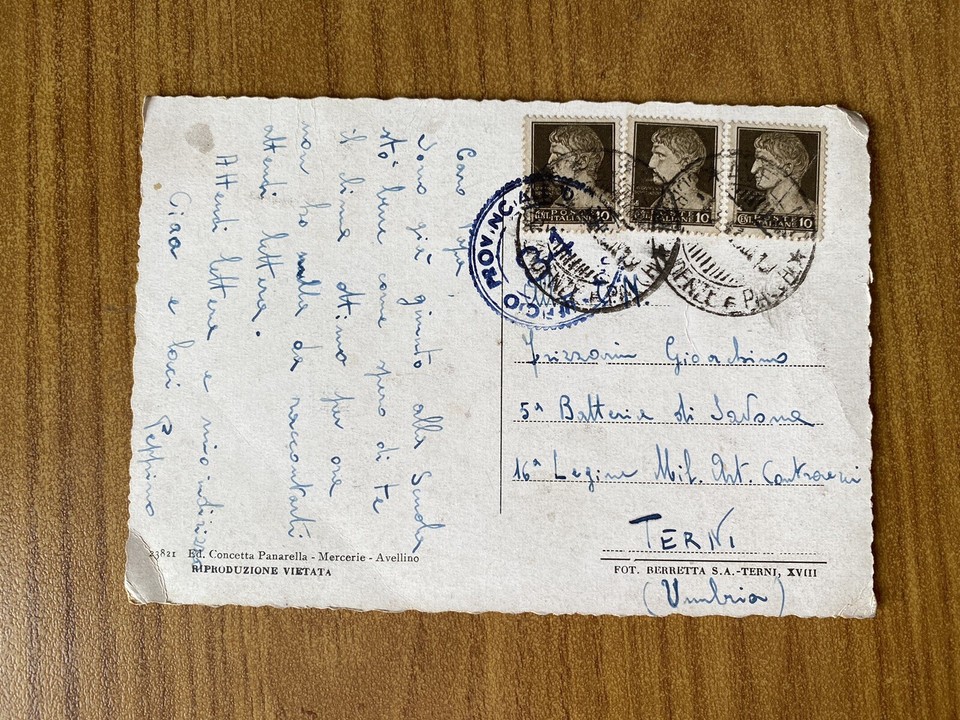 Caro
Sono già giunto alla Scuola
stò bene come spero di te
il clima ottimo per ora
non ho nulla da raccontarti
attendi lettera.
Attendi lettere e mio indirizzo
Ciao e baci Peppino
23821 Ed. Concetta Panarella - Mercerie - Avellino
RIPRODUZIONE VIETATA
POSTE ITALIANE CENT. 10
POSTE ITALIANE CENT. 10
POSTE ITALIANE CENT. 10
UFFICIO PROV.
Gioachino
5ª Batteria di Savona
16ª Legione Mil. Art. Controaerei
TERNI
FOT. BERRETTA S.A.-TERNI, XVIII
(Umbria)